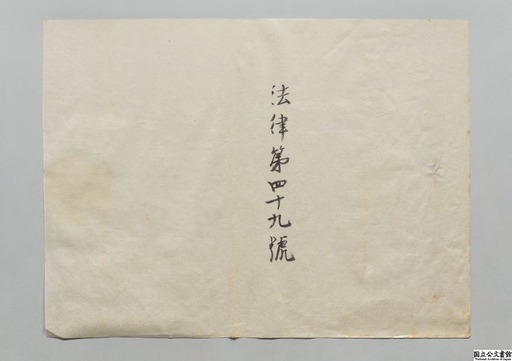 法律第四十九號
国立公文書館
National Archives of Japan